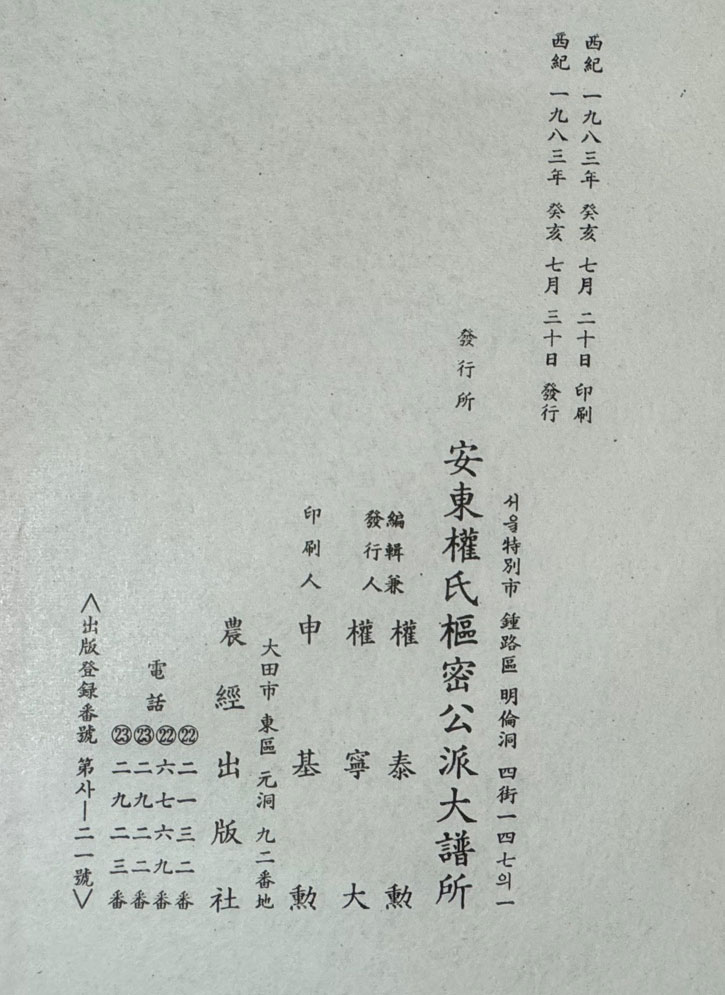 西紀 一九八三年 癸亥 七月 二十日 印刷
西紀 一九八三年 癸亥 七月 三十日 發行
서울特別市 鍾路區 明倫洞 四街一四七의一
發行所 安東權氏樞密公派大譜所
編輯兼 權泰勳
發行人 權寧大
印刷人 申基勳
大田市 東區 元洞 九二番地
農經出版社
電話 ㉒二一三二番
㉒六七六九番
㉓二九二二番
㉓二九二三番
<出版登録番號 第사—二一號>